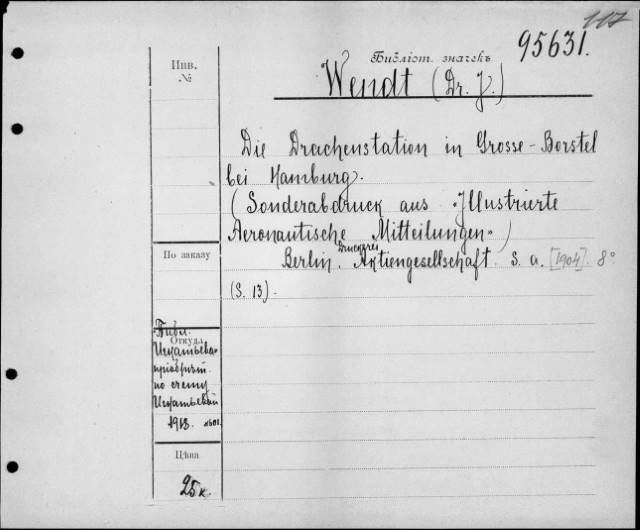 117
95631.
Библіот. значекъ
Инв.
№
Wendt (Dr. J.)
Die Drachenstation in Grosse-Borstel
bei Hamburg.
(Sonderabdruck aus "Illustrierte
Aeronautische Mitteilungen")
Druckerei
Berlin. Aktiengesellschaft. s. a. [1904] 8°
(S. 13).
По заказу
Откуда
Библ.
Игнатьева
пріобрѣт.
по счету
Игнатьевой
1913.
Цѣна
25 к.